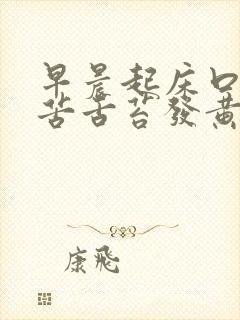 早晨起床口
苦舌苔發黃
康飛